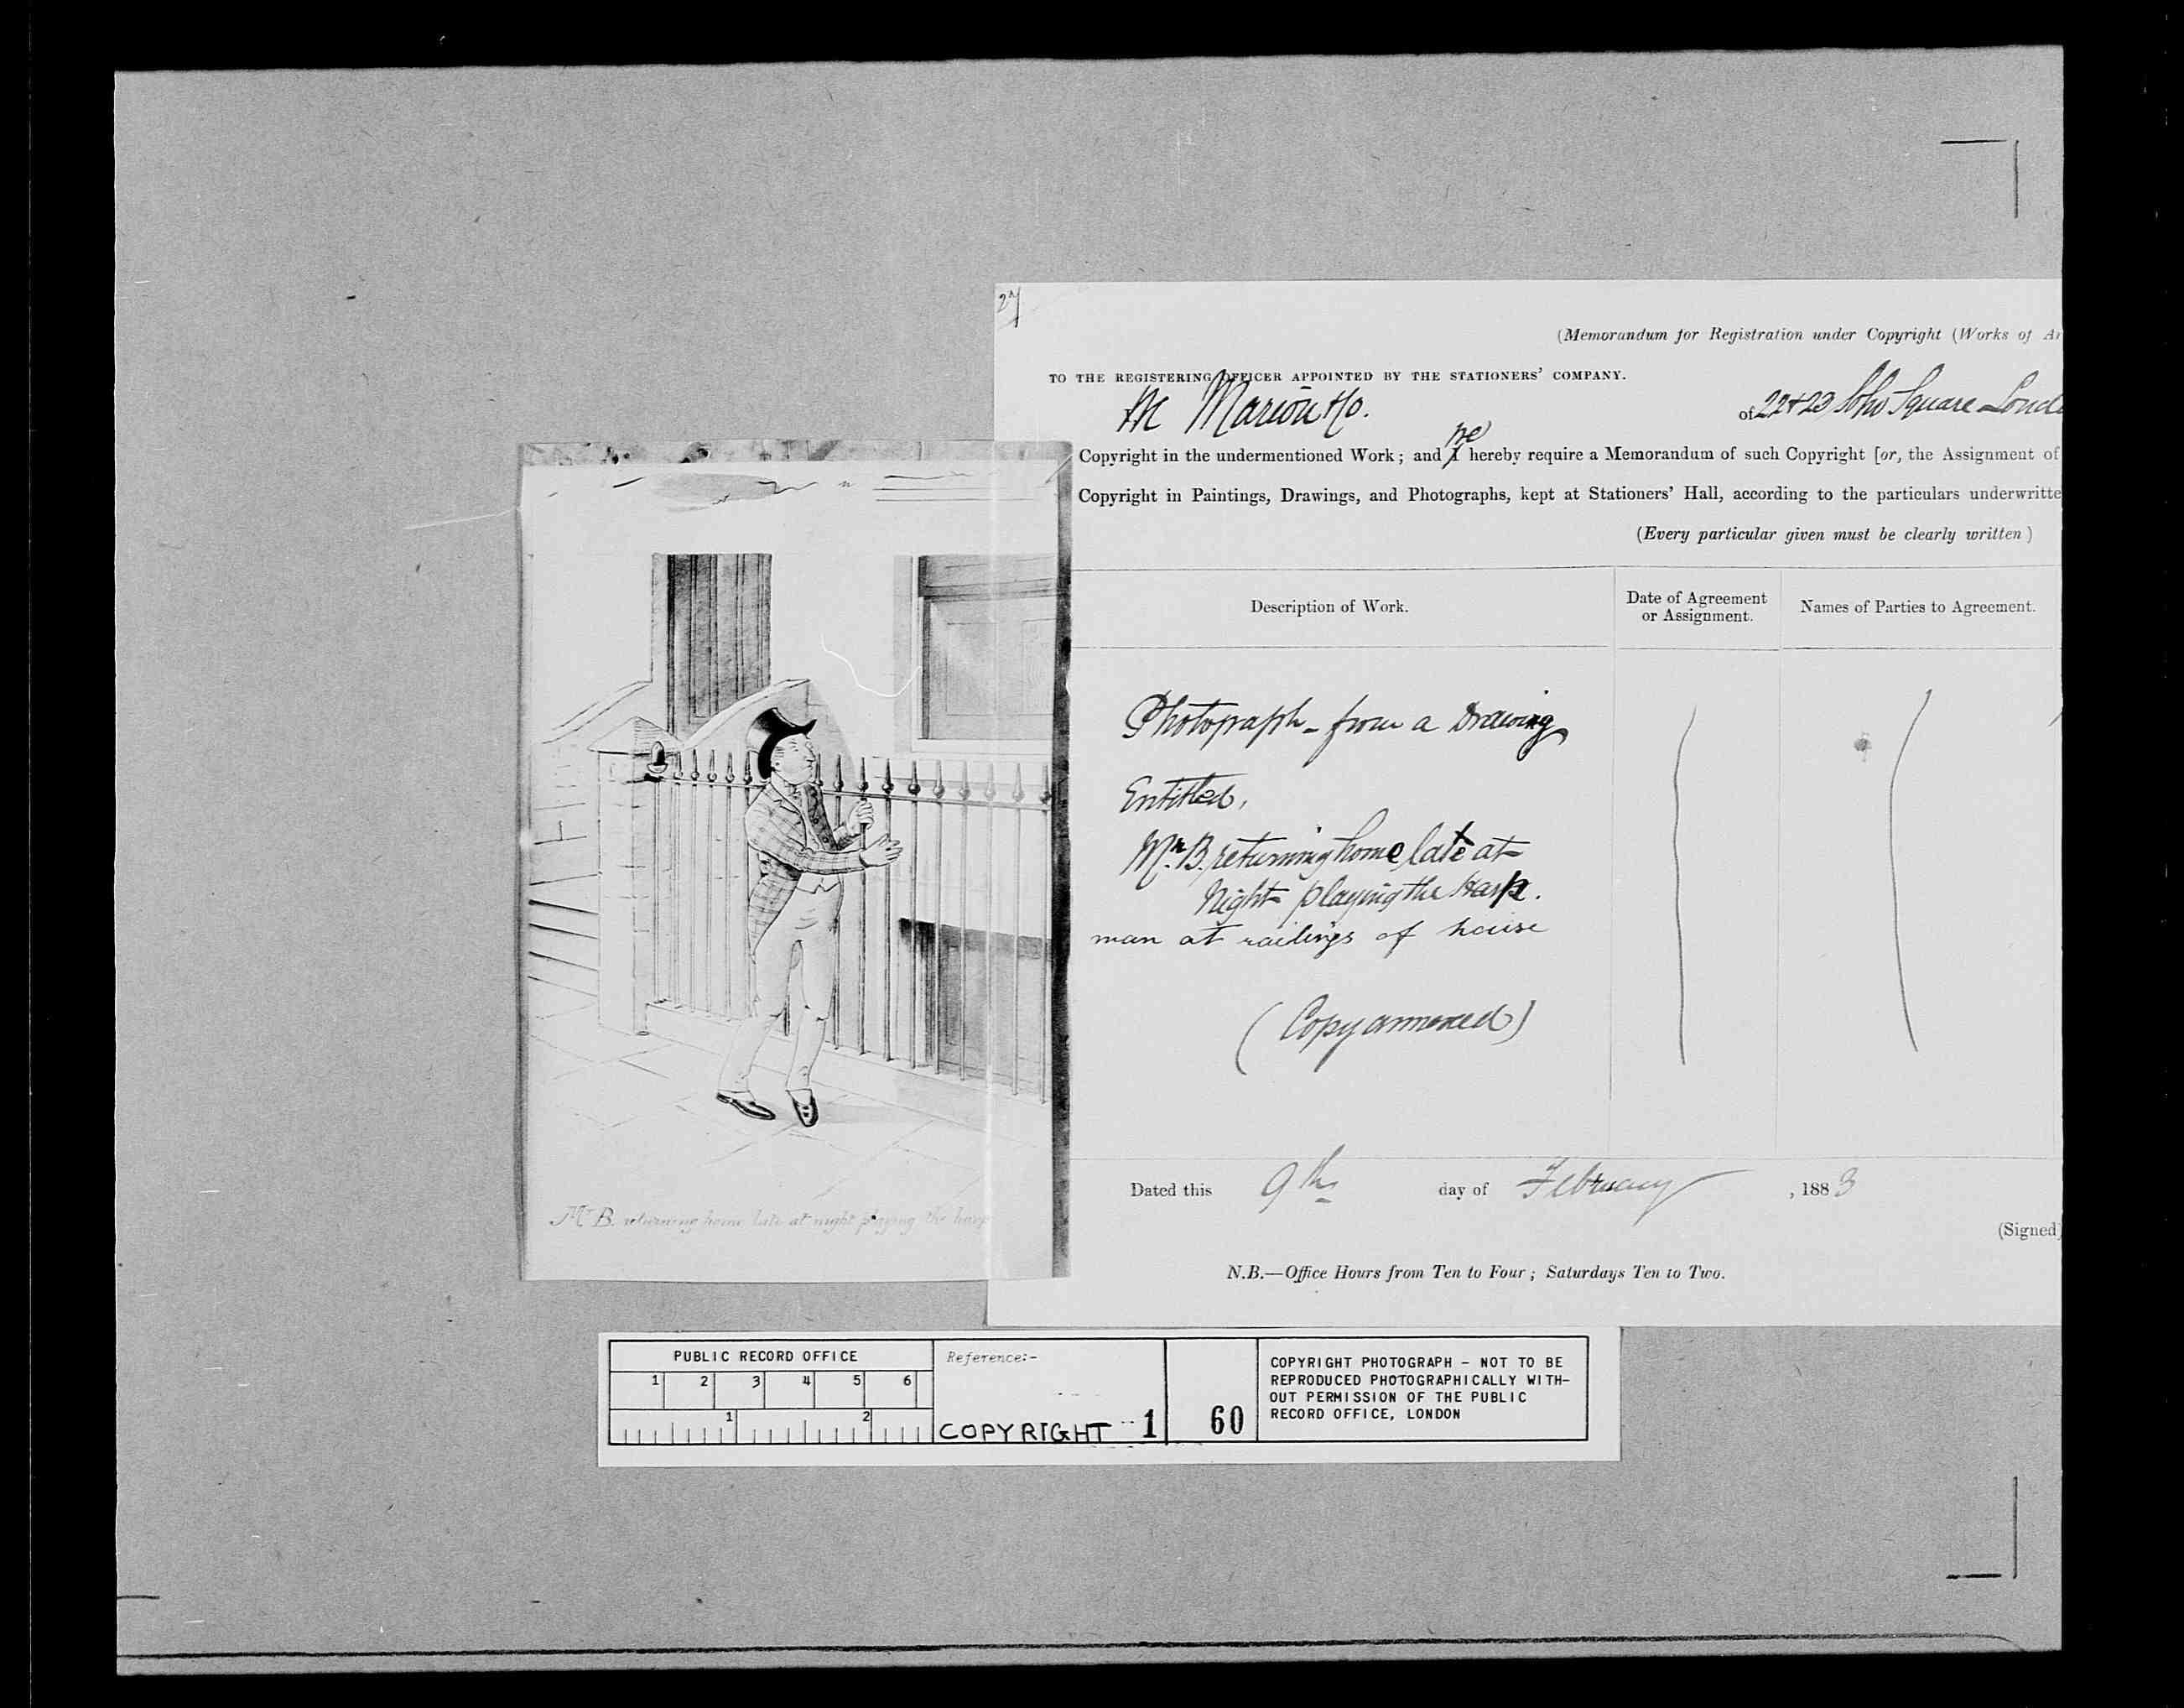 (Memorandum for Registration under Copyright (Works of Ar
TO THE REGISTERING OFFICER APPOINTED BY THE STATIONERS' COMPANY.
Marion & Co. of 22 & 23 Soho Square Londo
we
Copyright in the undermentioned Work; and I hereby require a Memorandum of such Copyright [or, the Assignment of
Copyright in Paintings, Drawings, and Photographs, kept at Stationers' Hall, according to the particulars underwritte
(Every particular given must be clearly written)
Description of Work.
Date of Agreement
or Assignment.
Names of Parties to Agreement.
Photograph - from a Drawing
Entitled,
Mr. B. returning home late at
Night playing the Harp.
man at railings of house
(Copy annexed)
Dated this 9th day of February, 1883
(Signed)
N.B.—Office Hours from Ten to Four; Saturdays Ten to Two.
Mr B. returning home late at night playing the harp
PUBLIC RECORD OFFICE
1 2 3 4 5 6
1 2
Reference:-
COPYRIGHT 1
60
COPYRIGHT PHOTOGRAPH - NOT TO BE
REPRODUCED PHOTOGRAPHICALLY WITH-
OUT PERMISSION OF THE PUBLIC
RECORD OFFICE, LONDON